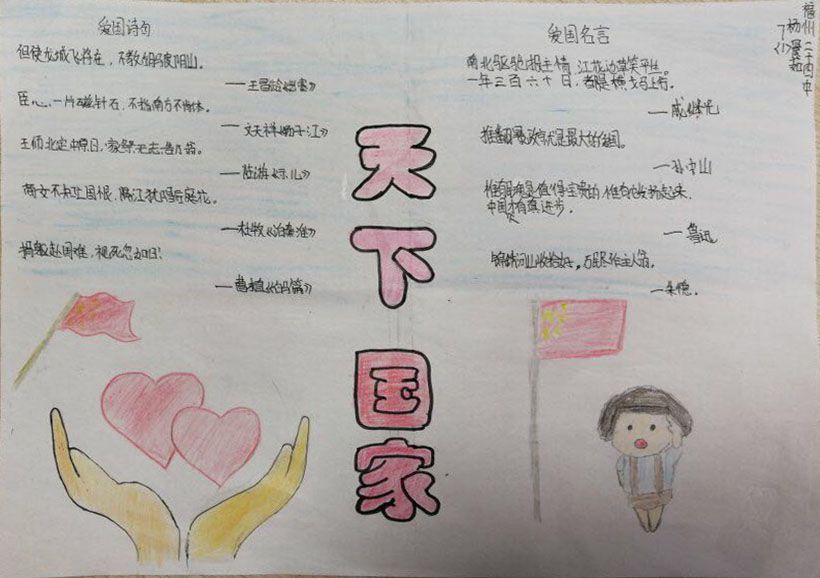 爱国诗句
但使龙城飞将在，不教胡马度阴山。
——王昌龄《出塞》
臣心一片磁针石，不指南方不肯休。
——文天祥《扬子江》
王师北定中原日，家祭无忘告乃翁。
——陆游《示儿》
商女不知亡国恨，隔江犹唱后庭花。
——杜牧《泊秦淮》
捐躯赴国难，视死忽如归！
——曹植《白马篇》
天下国家
爱国名言
南北驱驰报主情，江花边草笑平生。
一年三百六十日，都是横戈马上行。
——戚继光
——孙中山
惟有民魂是值得宝贵的，惟有他发扬起来，
中国才有真进步。
——鲁迅
锦绣河山收拾好，万民尽作主人翁。
——朱德。
福州二十四中